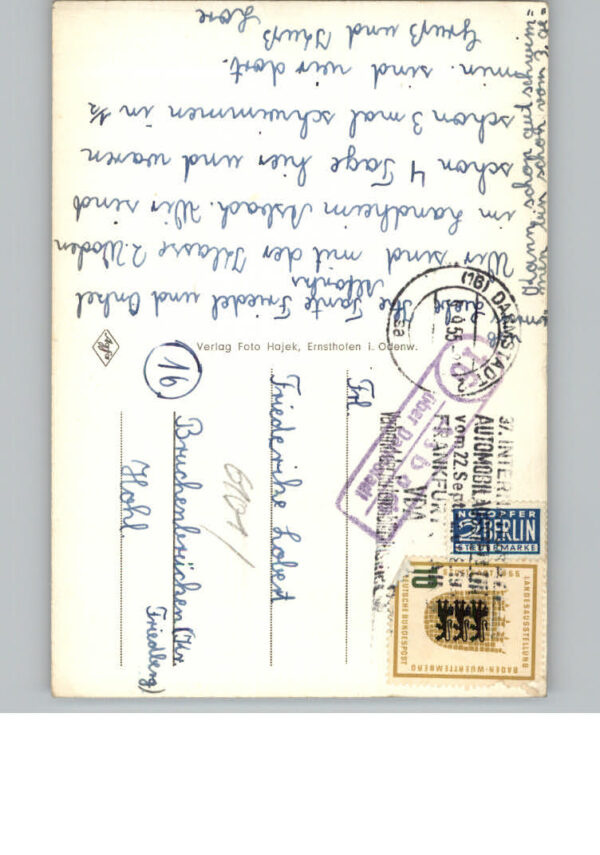 Liebe Tante Friedel und Onkel
Alfons
Wir sind mit der Klasse 2 Wochen
im Landheim Asbach. Wir sind
schon 4 Tage hier und waren
schon 3 mal schwimmen in ½
min. sind wir dort.
Gruß und Kuß
Lore
Verlag Foto Hajek, Ernsthofen i. Odenw.
Agfa
Frl.
Friederike Lobert
16
Bruchenbrücken (Kr.
Friedberg)
Hohl.
(16) DARMSTADT 2
16
Asbach
über Darmstadt
37. INTERN.
AUTOMOBIL-AUSSTELLUNG
vom 22. Sept.
FRANKFURT
NOTOPFER
2 BERLIN
STEUERMARKE
LANDESAUSSTELLUNG
BADEN-WUERTTEMBERG
DEUTSCHE BUNDESPOST
10